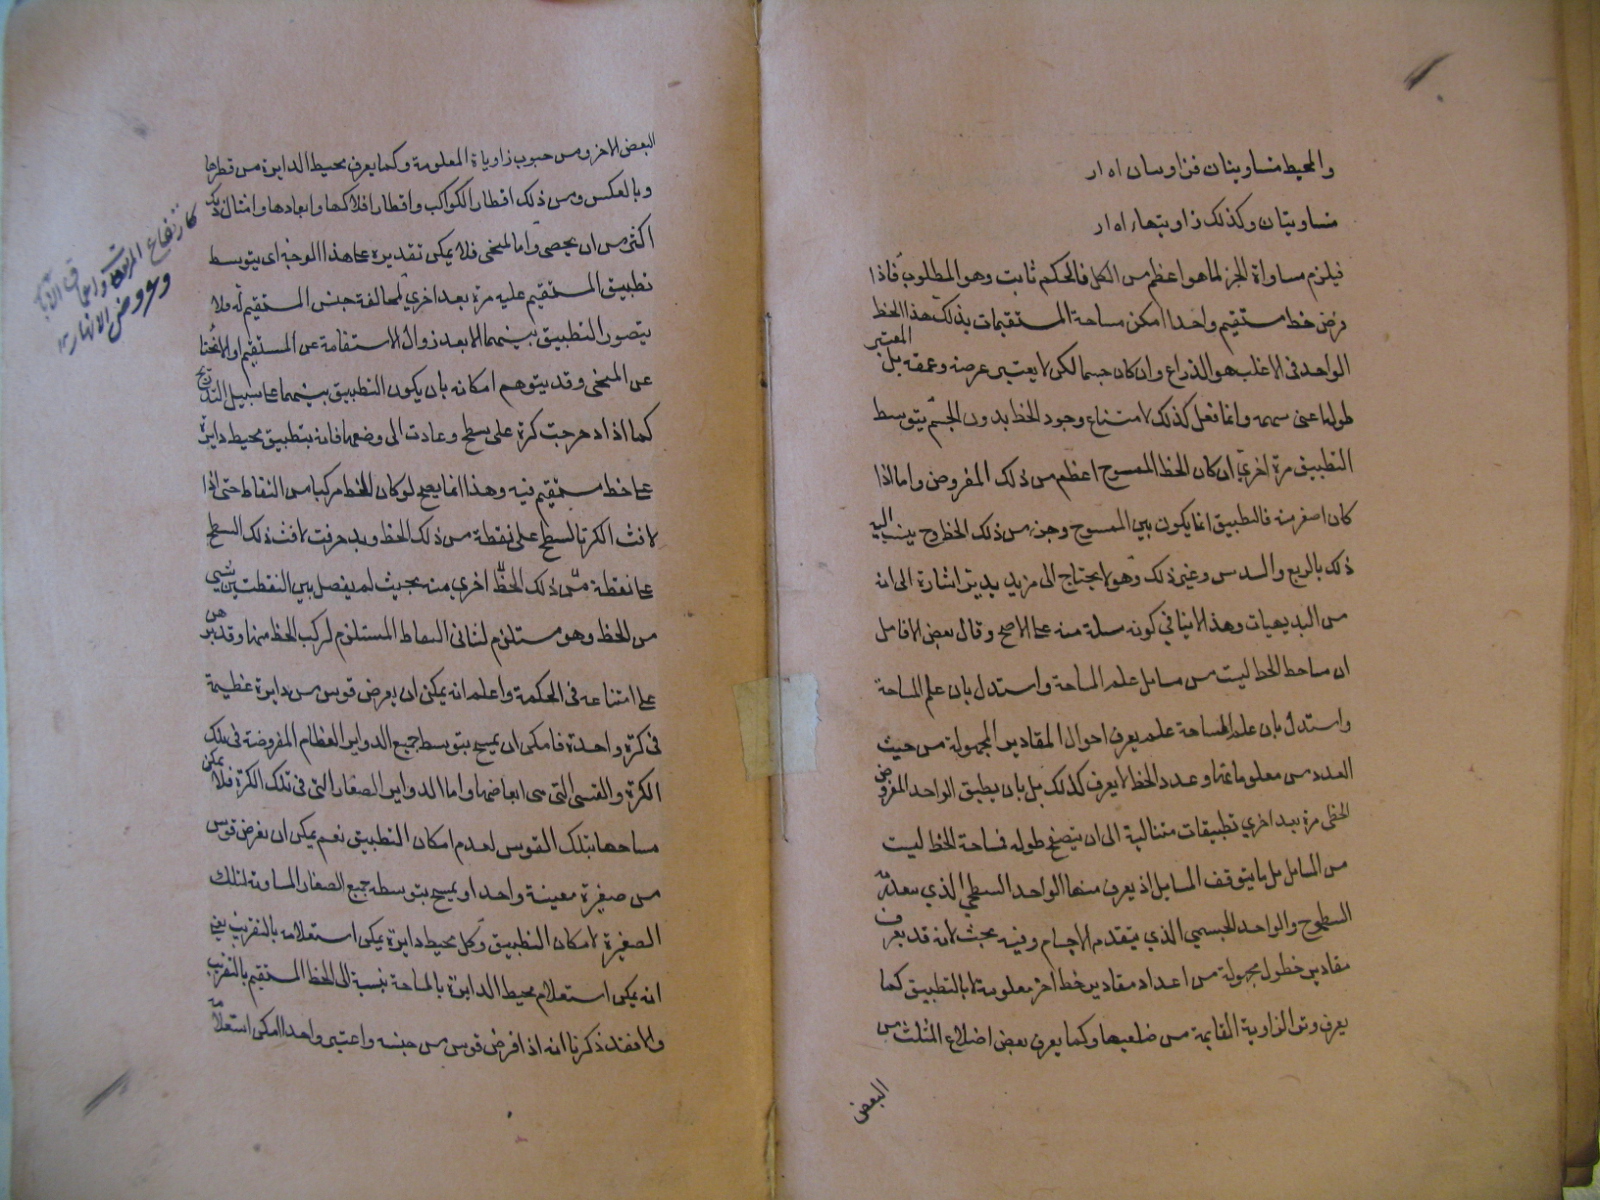 والمحيط متساويتان فزاويتان ا ه ا ر
متساويتان وكذلك زاويتها ا ه ا ر
فيلزم مساواة الجزء لما هو اعظم من الكل فالحكم ثابت وهو المطلوب فاذا
فرض خط مستقيم واحدا امكن مساحة المستقيمات بذلك هذا الخط المعتبر
الواحد فى الاغلب هو الذراع وان كان جسما لكن لا يعتبر عرضه وعمقه بل
طوله اعنى سمه وانما نعل كذلك لامتناع وجود الخط بدون الجسم يتوسط
التطبيق مرة اخري ان كان الخط الممسوح اعظم من ذلك المفروض واما اذا
كان اصغر منه فالتطبيق انما يكون بين الممسوح وجزء من ذلك الخط وح ينسب اليه
ذلك بالربع والسدس وغير ذلك وهو لا يحتاج الى مزيد اشارة الى انه
من البديهيات وهذا لا ينافي كونه مسئلة منه على الاصح وقال بعض الافاضل
ان مساحط الخط ليت من مسايل علم المساحة واستدل بان علم المساحة
واستدل بان علم المساحة علم يعرف احوال المقادير المجهولة من حيث
العدد من معلوماتها وعدد الخط لا يعرف كذلك بل بان يطبق الواحد المفروض
الخطى مرة بعد اخري تطبيقات متتالية الى ان يتضح طوله فمساحة الخط ليت
من المسايل بل ما يتوقف المسايل اذ يعرف منها الواحد السطحي الذي
السطوح والواحد الجسمي الذي يتقدم الاجسام وفيه بحث لانه قد يعرف
مقادير خطول مجهولة من اعداد مقادير خط اخر معلومة لا بالتطبيق كما
يعرف وتر الزاوية القايمة من ضلعيها وكما يعرف بعض اضلاع المثلث من
البعض
البعض الاخر ومن جيوب زواياه المعلومة وكما يعرف محيط الدايرة من قطرها
وبالعكس ومن ذلك اقطار الكواكب واقطار افلاكها وابعادها وامثال ذلك
اكثر من ان يحصى واما المنحنى فلا يمكن تقديره على هذا الوجه اى بتوسط
تطبيق المستقيم عليه مرة بعد اخري لمخالفة جنس المستقيم له فلا
يتصور التطبيق بينهما الا بعد زوال الاستقامة عن المستقيم او الانحنا
عن المنحنى وقد يتوهم امكانه بان يكون التطبيق بينهما على سبيل التدريج
كما اذا دحرجت كرة على سطح وعادت الى وضعها فانه يتطبيق محيط دايرة
على خط مستقيم فيه وهذا انما يصح لو كان الخط مركبا من النقاط حتى اذا
لاقت الكرة السطح على نقطة من ذلك الخط وبدحرفت لاقت ذلك السطح
على نقطة من ذلك الخط اخري منه بحيث لم يفصل بين النقطتين شيى
من الخط وهو مستلزم لتتالى النقاط المستلزم لتركب الخط منها وقد برهن
على امتناعه فى الحكمة واعلم انه يمكن ان يفرض قوس من دايرة عظيمة
فى كرة واحدة فامكن ان يمسح بتوسط جميع الدواير العظام المفروضة فى تلك
الكرة والقسى التى هى ابعاضها واما الدواير الصغار التى فى تلك الكرة فلا يمكن
مساحتها بتلك القوس لعدم امكان التطبيق نعم يمكن ان نفرض قوس
من صغيرة معينة واحدا ويمسح بتوسطه جميع الصغار المساوية لتلك
الصغيرة لامكان التطبيق وكل محيط دايرة يمكن استعلامه بالتقريب يعني
انه يمكن استعلام محيط الدايرة بالمساحة بنسبة الى الخط المستقيم بالتقريب
والا فقد ذكرنا انه اذا فرض قوس من جنسه واعتبر واحدا امكن استعلامه
كارتفاع المرتفعات واعماق الآبار
وعروض الانهار ١٢